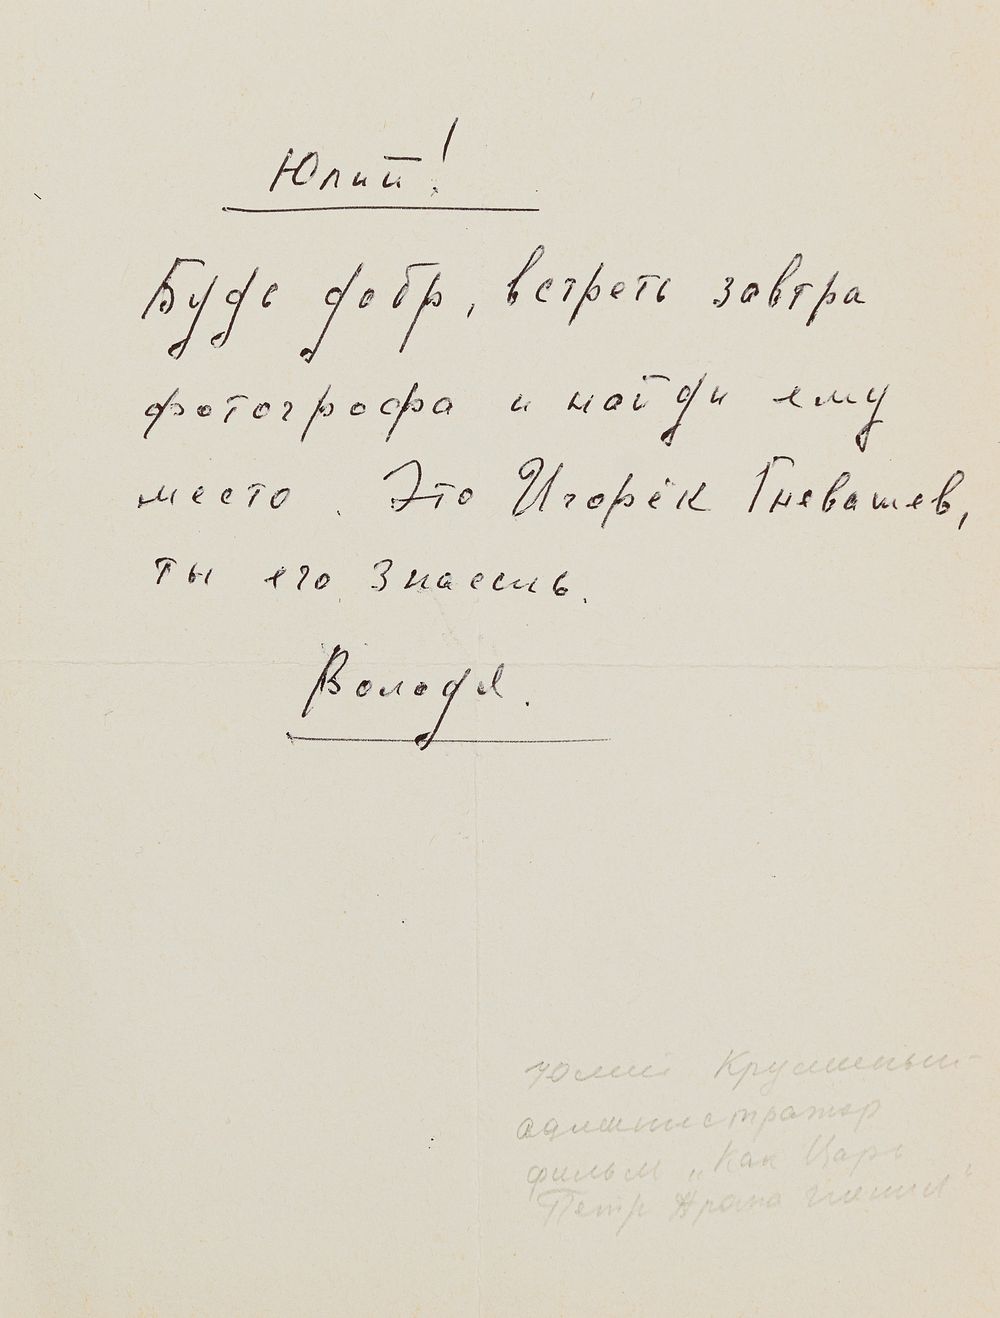 Юлий!
Будь добр, встреть завтра
фотографа и найди ему
место. Это Игорёк Гневашев,
ты его знаешь.
Володя.
Юлий
администратор
фильм „Как Царь
Петр Арапа женил"